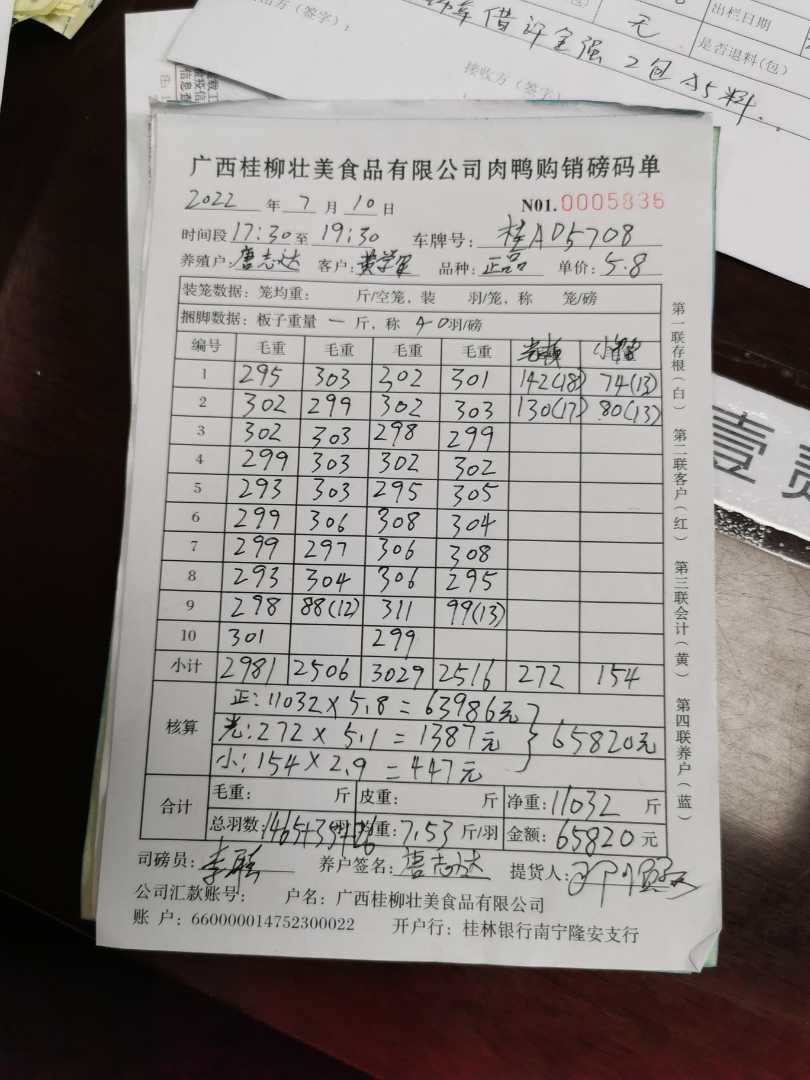 方（签字）：
借许金强 2包 A5料..
无
出栏日期
是否退料(包)
接收方（签字）
广西桂柳壮美食品有限公司肉鸭购销磅码单
2022 年 7 月 10 日 N01.0005836
时间段 17:30 至 19:30 车牌号： 桂AD5708
养殖户：唐志达 客户： 品种：正品 单价：5.8
装笼数据：笼均重： 斤/空笼，装 羽/笼，称 笼/磅
捆脚数据：板子重量 一 斤，称 40羽/磅
编号 毛重 毛重 毛重 毛重
1 295 303 302 301 142(18) 74(13)
2 302 299 302 303 130(17) 80(13)
3 302 303 298 299
4 299 303 302 302
5 293 303 295 305
6 299 306 308 304
7 299 297 306 308
8 293 304 306 295
9 298 88(12) 311 99(13)
10 301 299
小计 2981 2506 3029 2516 272 154
核算
正：11032 × 5.8 = 63986元
光：272 × 5.1 = 1387元 } 65820元
小：154 × 2.9 = 447元
合计
毛重： 斤 皮重： 斤 净重：11032 斤
总羽数：1465+35+26 均重：7.53 斤/羽 金额：65820 元
司磅员： 养户签名：唐志达 提货人：
公司汇款账号： 户名：广西桂柳壮美食品有限公司
账 户：660000014752300022 开户行：桂林银行南宁隆安支行
第一联存根（白） 第二联客户（红） 第三联会计（黄） 第四联养户（蓝）
壹